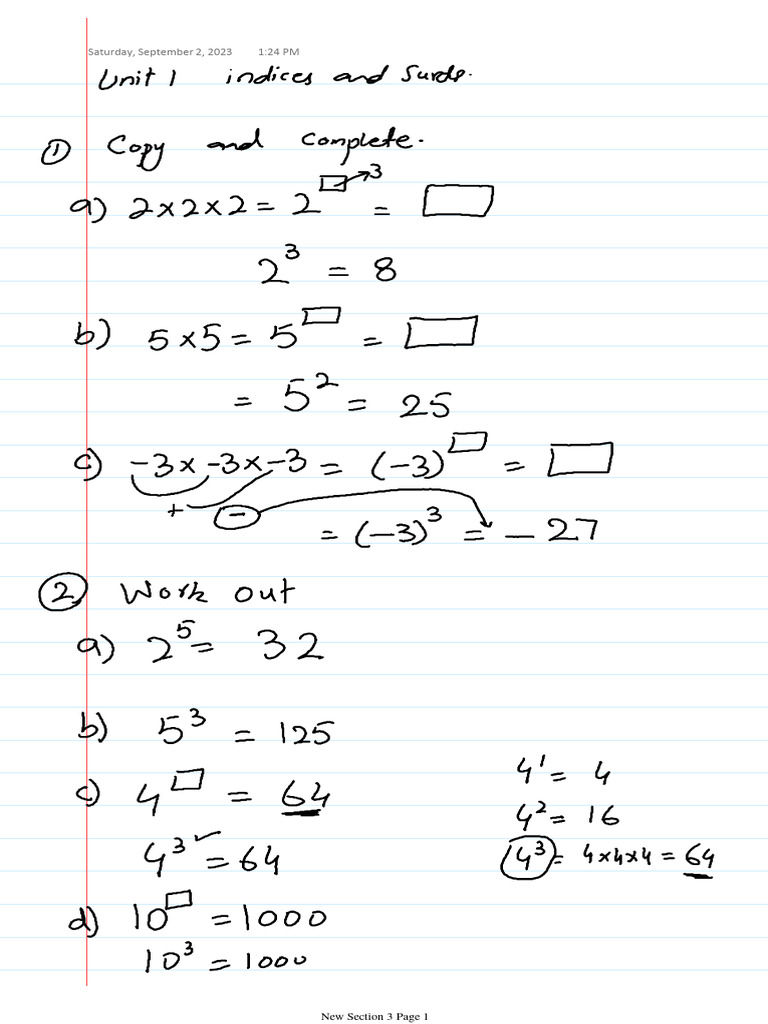 Saturday, September 2, 2023 1:24 PM
Unit 1 indices and Surds.
① Copy and complete.
a) 2×2×2 = 2^□→3 = □
2³ = 8
b) 5×5 = 5^□ = □
= 5² = 25
c) -3×-3×-3 = (-3)^□ = □
+ -
= (-3)³ = -27
② Work out
a) 2⁵ = 32
b) 5³ = 125
c) 4^□ = 64
4³ ✓ = 64
4¹ = 4
4² = 16
4³ = 4×4×4 = 64
d) 10^□ = 1000
10³ = 1000
New Section 3 Page 1